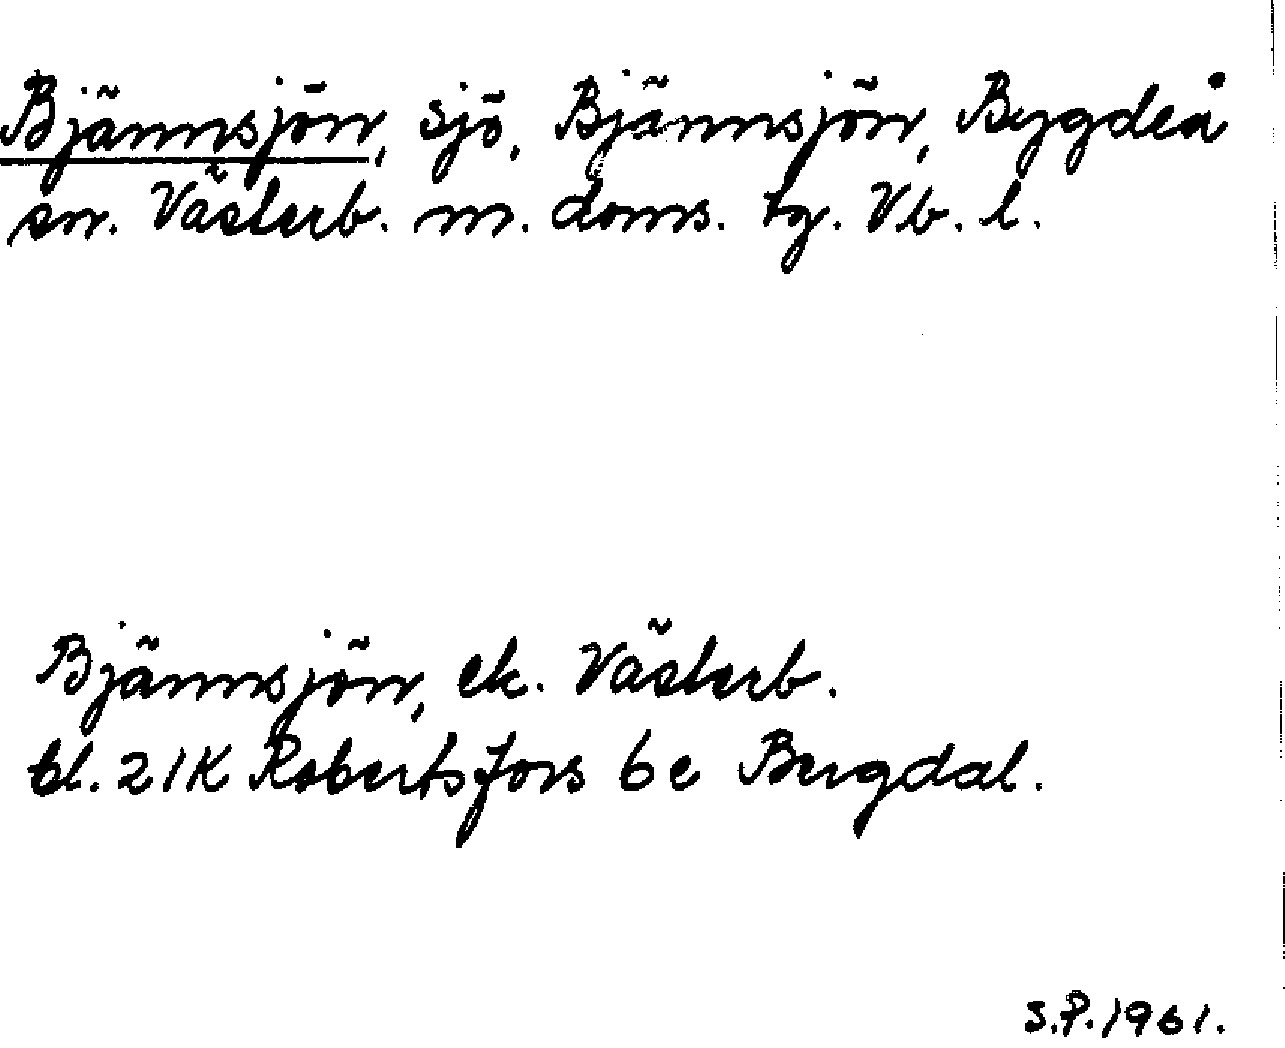 Bjännsjön, sjö, Bjännsjön, Bygdeå
sn. Västerb. m. doms. tg. Vb. l.
Bjännsjön, ek. Västerb.
bl. 21K Robertsfors 6e Bergdal.
S.P. 1961.